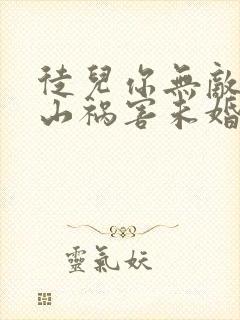 徒兒你無敵
山禍害未婚
靈氣妖